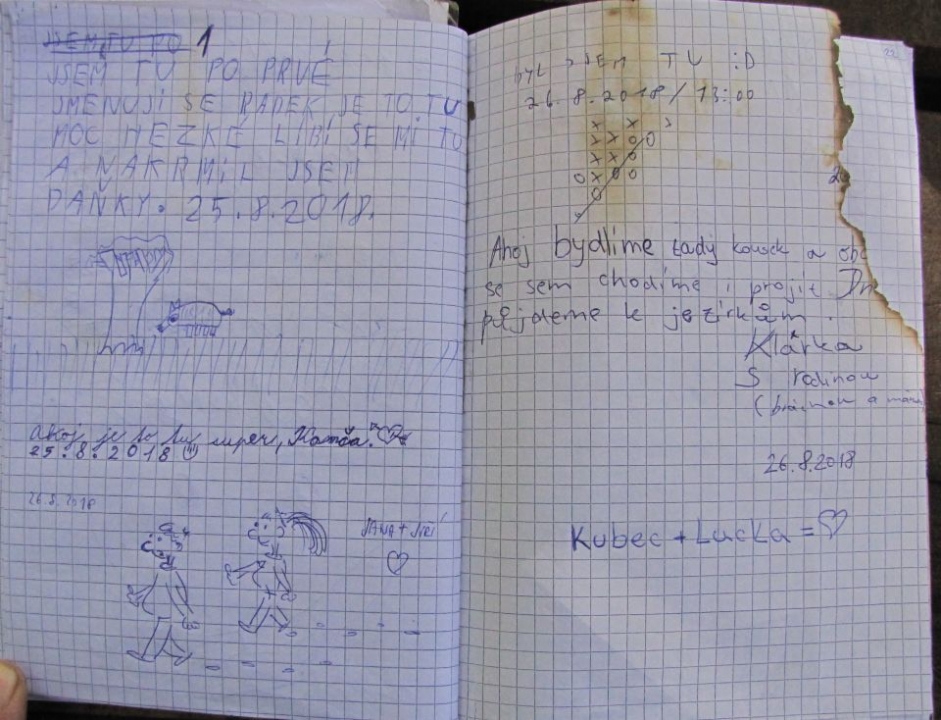 JSEM TU PO 1
JSEM TU PO PRVÉ
JMENUJI SE RADEK JE TO TU
MOC HEZKÉ LÍBÍ SE MI TU
A NAKRMIL JSEM
DAŇKY. 25.8.2018.
ahoj, je to tu super, Kamča.
25.8.2018
26.8.2018
JANA + JIŘÍ
BYL JSEM TU :D
26.8.2018/13:00
x x
x x o o
x x o
o x o o
o
Ahoj bydlíme tady kousek a
se sem chodíme i projít.
půjdeme k jezírkům.
Klárka
S rodinou
(bráchou a
26.8.2018
Kubec + Lucka =